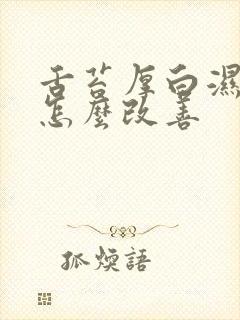 舌苔厚白濕
怎麼改善
狐煥語